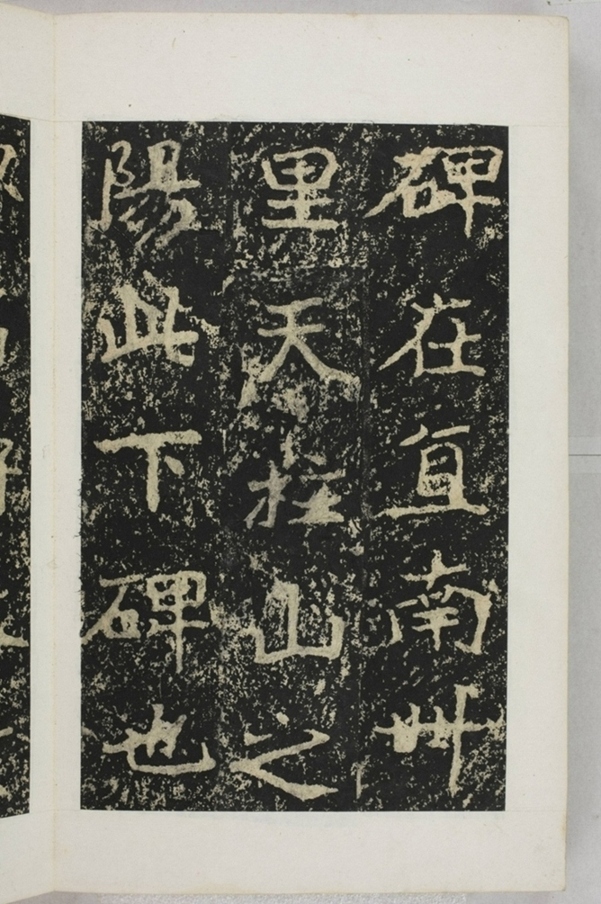 碑在直南卌
里天柱山之
陽此下碑也